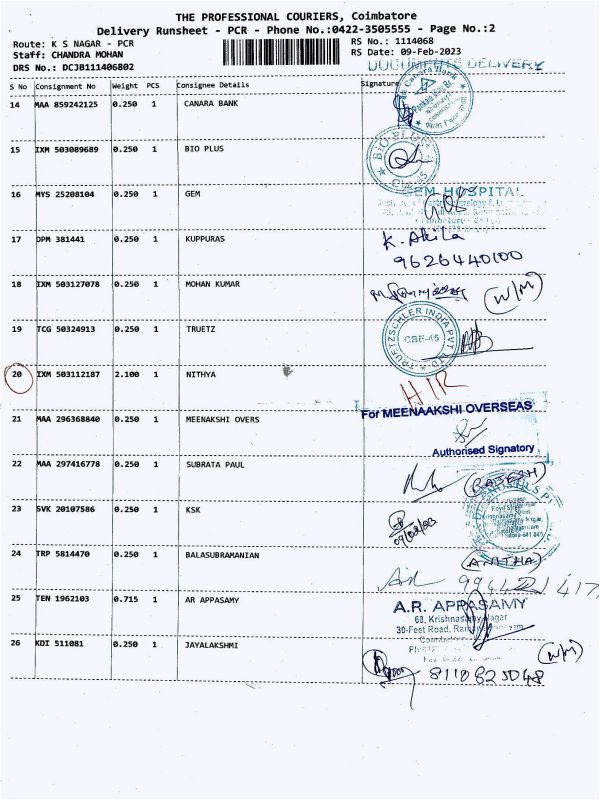 THE PROFESSIONAL COURIERS, Coimbatore
Delivery Runsheet - PCR - Phone No.:0422-3505555 - Page No.:2
Route: K S NAGAR - PCR RS No.: 1114068
Staff: CHANDRA MOHAN RS Date: 09-Feb-2023
DRS No.: DCJB111406802 DOCUMENTS DELIVERY
S No Consignment No Weight PCS Consignee Details Signature
14 MAA 859242125 0.250 1 CANARA BANK
Canara Bank
15 IXM 503089689 0.250 1 BIO PLUS
BIO PLUS
16 MYS 25208104 0.250 1 GEM
GEM HOSPITAL
17 DPM 381441 0.250 1 KUPPURAS K. Akila
9626440100
18 IXM 503127078 0.250 1 MOHAN KUMAR (W/M)
19 TCG 50324913 0.250 1 TRUETZ
TRUETZSCHLER INDIA PVT LTD
CBE-45
20 IXM 503112187 2.100 1 NITHYA
21 MAA 296368840 0.250 1 MEENAKSHI OVERS
For MEENAAKSHI OVERSEAS
Authorised Signatory
22 MAA 297416778 0.250 1 SUBRATA PAUL (RAJESH)
23 SVK 20107586 0.250 1 KSK
09/02/23
24 TRP 5814470 0.250 1 BALASUBRAMANIAN (ANITHA)
25 TEN 1962103 0.715 1 AR APPASAMY
A.R. APPASAMY
68, Krishnasamy Nagar
30-Feet Road,
26 KDI 511081 0.250 1 JAYALAKSHMI (W/M)
8110825048